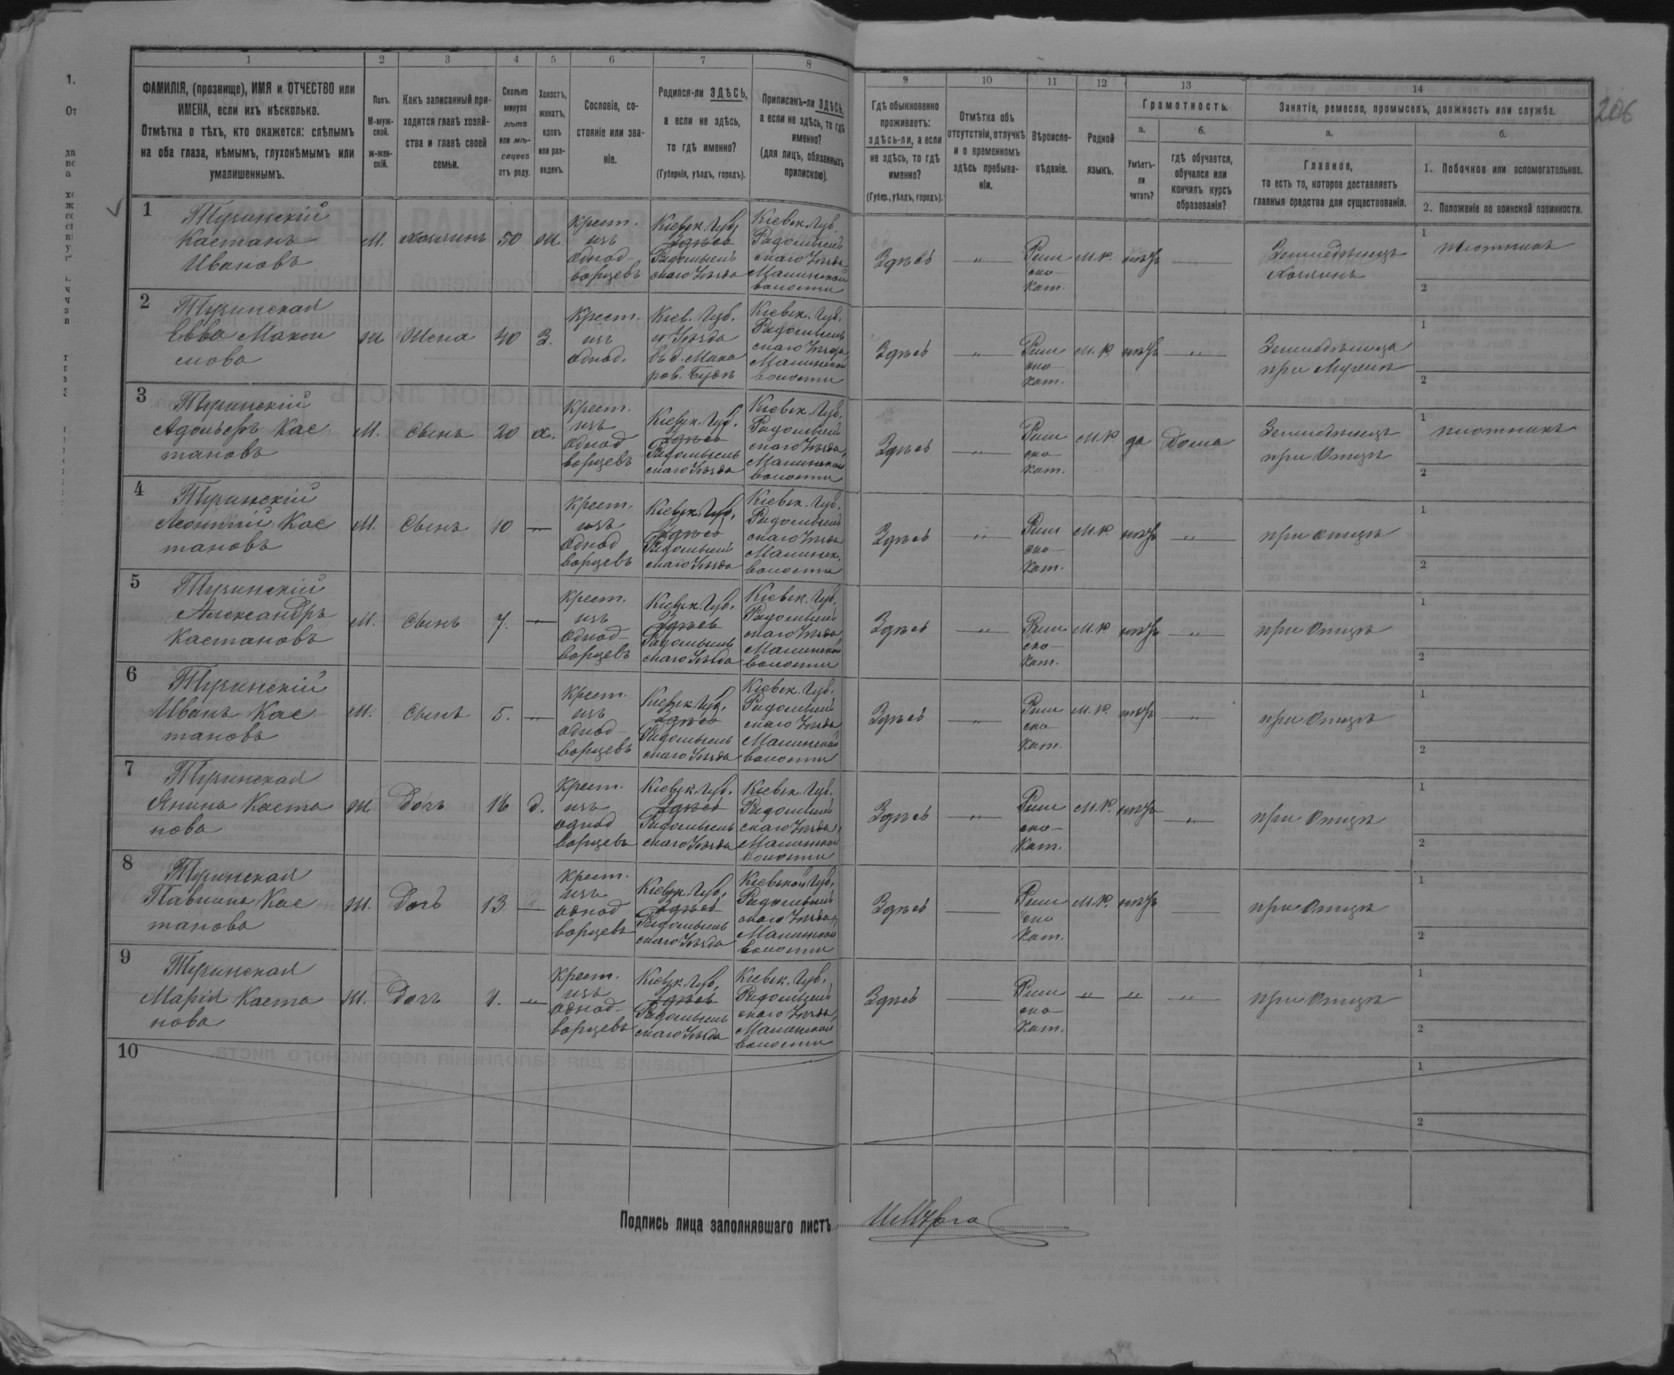 206
1
2
3
4
5
6
7
8
9
10
11
12
13
14
ФАМИЛІЯ, (прозвище), ИМЯ и ОТЧЕСТВО или
ИМЕНА, если ихъ нѣсколько.
Отмѣтка о тѣхъ, кто окажется: слѣпымъ
на оба глаза, нѣмымъ, глухонѣмымъ или
умалишеннымъ.
Полъ.
М-муж-
ской.
ж-жен-
скій.
Какъ записанный при-
ходится главѣ хозяй-
ства и главѣ своей
семьи.
Сколько
минуло
лѣтъ
или мѣ-
сяцевъ
отъ роду.
Холостъ,
женатъ,
вдовъ
или раз-
веденъ.
Сословіе, со-
стояніе или зва-
ніе.
Родился-ли ЗДѢСЬ,
а если не здѣсь,
то гдѣ именно?
(Губернія, уѣздъ, городъ).
Приписанъ-ли ЗДѢСЬ,
а если не здѣсь, то гдѣ
именно?
(для лицъ, обязанныхъ
припискою).
Гдѣ обыкновенно
проживаетъ:
здѣсь-ли, а если
не здѣсь, то гдѣ
именно?
(Губер., уѣздъ, городъ).
Отмѣтка объ
отсутствіи, отлучкѣ
и о временномъ
здѣсь пребыва-
ніи.
Вѣроиспо-
вѣданіе.
Родной
языкъ.
Грамотность.
а.
Умѣетъ-
ли
читать?
б.
гдѣ обучается,
обучался или
кончилъ курсъ
образованія?
Занятіе, ремесло, промыселъ, должность или служба.
а.
Главное,
то есть то, которое доставляетъ
главныя средства для существованія.
б.
1. Побочное или вспомогательное.
2. Положеніе по воинской повинности.
1
Каетанъ
Ивановъ
М.
хозяинъ
50
ж
крест.
изъ
однод
ворцевъ
Кіевск. Губ,
Здѣсь
Радомысль
скаго Уѣзда
Кіевск. Губ.
Радомысль
скаго Уѣзда
Малинской
волости
Здѣсь
Рим
ско
Кат.
нѣтъ
Земледѣлецъ
хозяинъ
1 плотникъ
2
2
Евва Макси
мова
ж
Жена
40
З.
Крест.
изъ
однод.
Кіев. Губ.
и Уѣзда
въ д. Мака
ров. Буда
Кіевск. Губ.
Радомысль
скаго Уѣзда
Малинской
волости
Здѣсь
Рим
ско
кат.
нѣтъ
Земледѣлица
при Мужѣ
1
2
3
Адольфъ Кае
тановъ
М.
Сынъ
20
х.
Крест.
изъ
однод
ворцевъ
Кіевск. Губ.
Здѣсь
Радомысль
скаго Уѣзда
Кіевск. Губ.
Радомысль
скаго Уѣзда,
Малинской
волости
Здѣсь
Рим
ско
кат.
да
Дома
Земледѣлецъ
при Отцѣ
1 плотникъ
2
4
Леонтій Кае
тановъ
М.
Сынъ
10
Крест.
изъ
однод
ворцевъ
Кіевск. Губ.
Здѣсь
Радомысль
скаго Уѣзда
Кіевск. Губ.
Радомысль
скаго Уѣзда
Малинск.
волости
Здѣсь
Рим
ско
Кат.
нѣтъ
при отцѣ
1
2
5
Александръ
Каетановъ
М.
Сынъ
7.
Крест.
изъ
однод
ворцевъ
Кіевск. Губ.
Здѣсь
Радомысль
скаго Уѣзда
Кіевск. Губ.
Радомысль
скаго Уѣзда
Малинской
волости
Здѣсь
Рим
ско
Кат.
нѣтъ
при Отцѣ
1
2
6
Иванъ Кае
тановъ
М.
Сынъ
5.
Крест.
изъ
однод
ворцевъ
Кіевск. Губ,
Здѣсь
Радомысль
скаго Уѣзда
Кіевск. Губ.
Радомысль
скаго Уѣзда
Малинской
волости
Здѣсь
Рим
ско
Кат.
нѣтъ
при Отцѣ
1
2
7
Янина Каета
нова
ж
Дочь
16
д.
Крест.
изъ
однод
ворцевъ
Кіевск. Губ.
Здѣсь
Радомысль
скаго Уѣзда
Кіевск. Губ.
Радомысль
скаго Уѣзда,
Малинской
волости
Здѣсь
Рим
ско
Кат.
нѣтъ
при Отцѣ
1
2
8
Кае
танова
ж.
Дочь
13
Крест.
изъ
однод
ворцевъ
Кіевск. Губ,
Здѣсь
Радомысль
скаго Уѣзда
Кіевской Губ,
Радомысль
скаго Уѣзда,
Малинской
волости
Здѣсь
Рим
ско
Кат.
нѣтъ
при Отцѣ
1
2
9
Марія Каета
нова
ж.
Дочь
Крест.
изъ
однод
ворцевъ
Кіевск. Губ,
Здѣсь
Радомысль
скаго Уѣзда
Кіевск. Губ,
Радомысль
скаго Уѣзда,
Малинской
волости
Здѣсь
Рим
ско
Кат.
при Отцѣ
1
2
10
1
2
Подпись лица заполнявшаго листъ